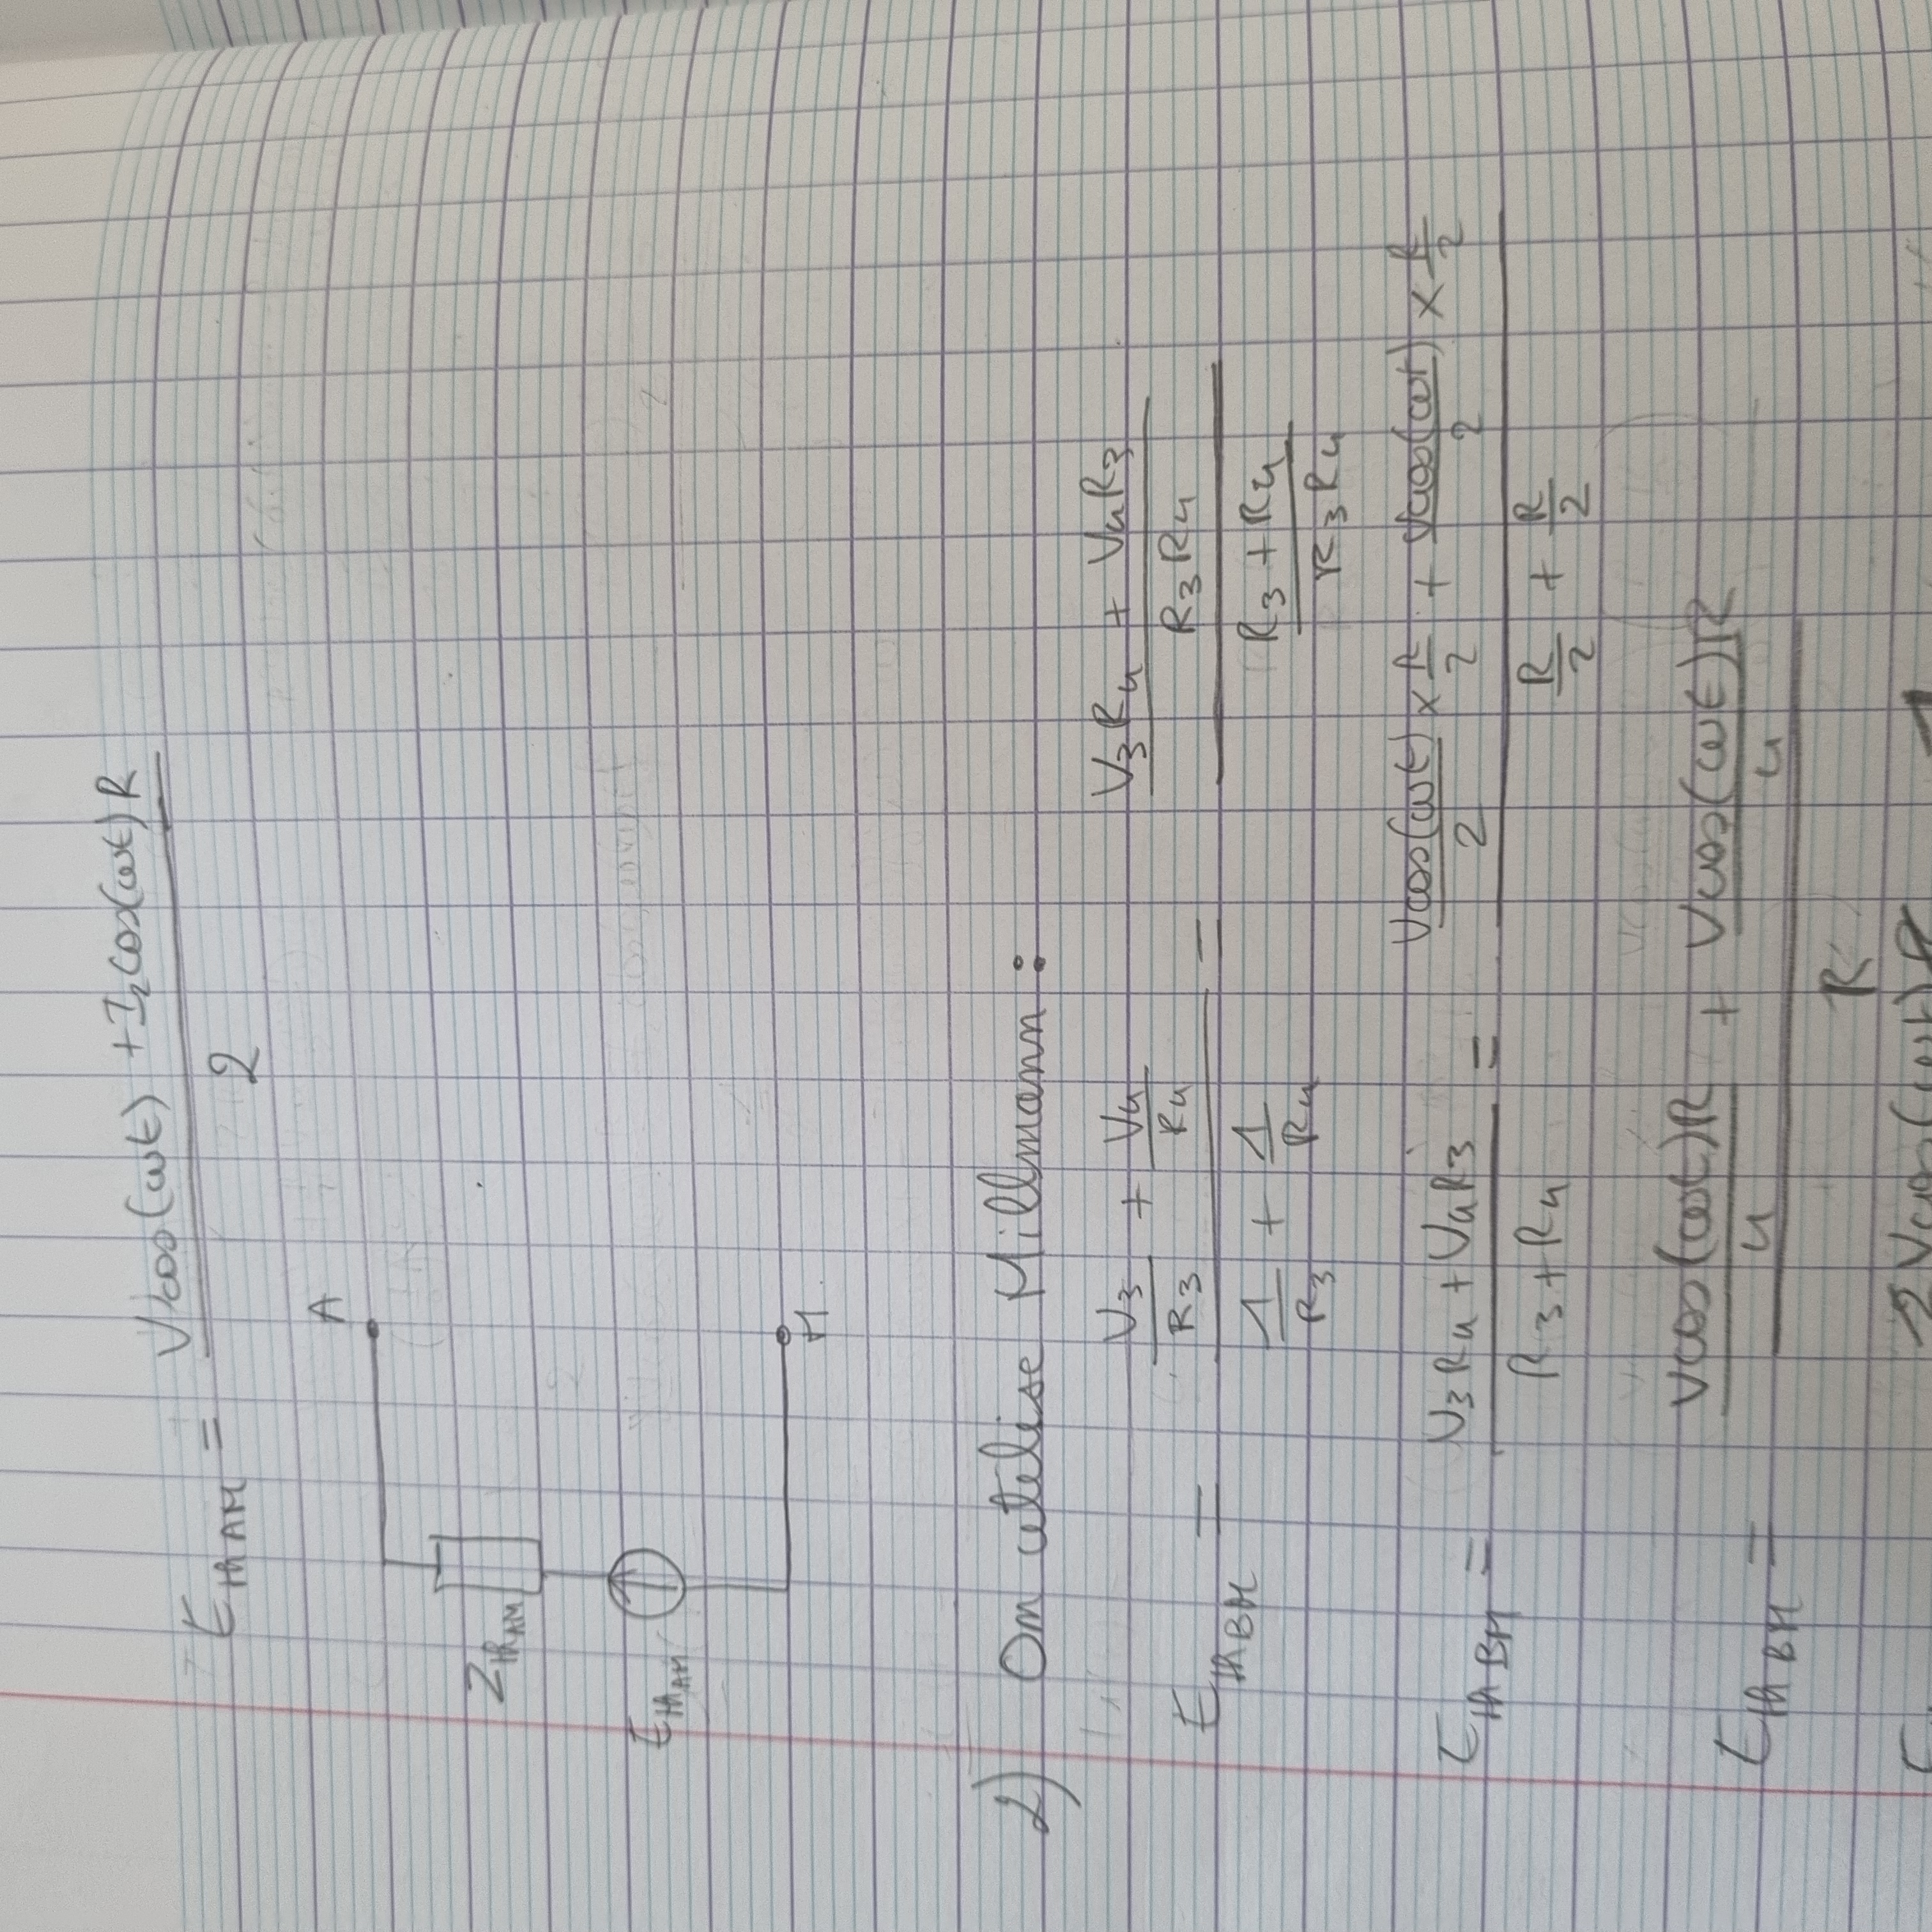 E_thAM = (Vcos(ωt) + I₂cos(ωt)R) / 2
A
Z_thAM
E_thAM
M
2) On utilise Millmann :
E_thBM = (V₃/R₃ + V₄/R₄) / (1/R₃ + 1/R₄) = ((V₃R₄ + V₄R₃) / (R₃R₄)) / ((R₃ + R₄) / (R₃R₄))
E_thBM = (V₃R₄ + V₄R₃) / (R₃ + R₄) = (Vcos(ωt)/2 × R/2 + Vcos(ωt)/2 × R/2) / (R/2 + R/2)
E_thBM = (Vcos(ωt)R/4 + Vcos(ωt)R/4) / R